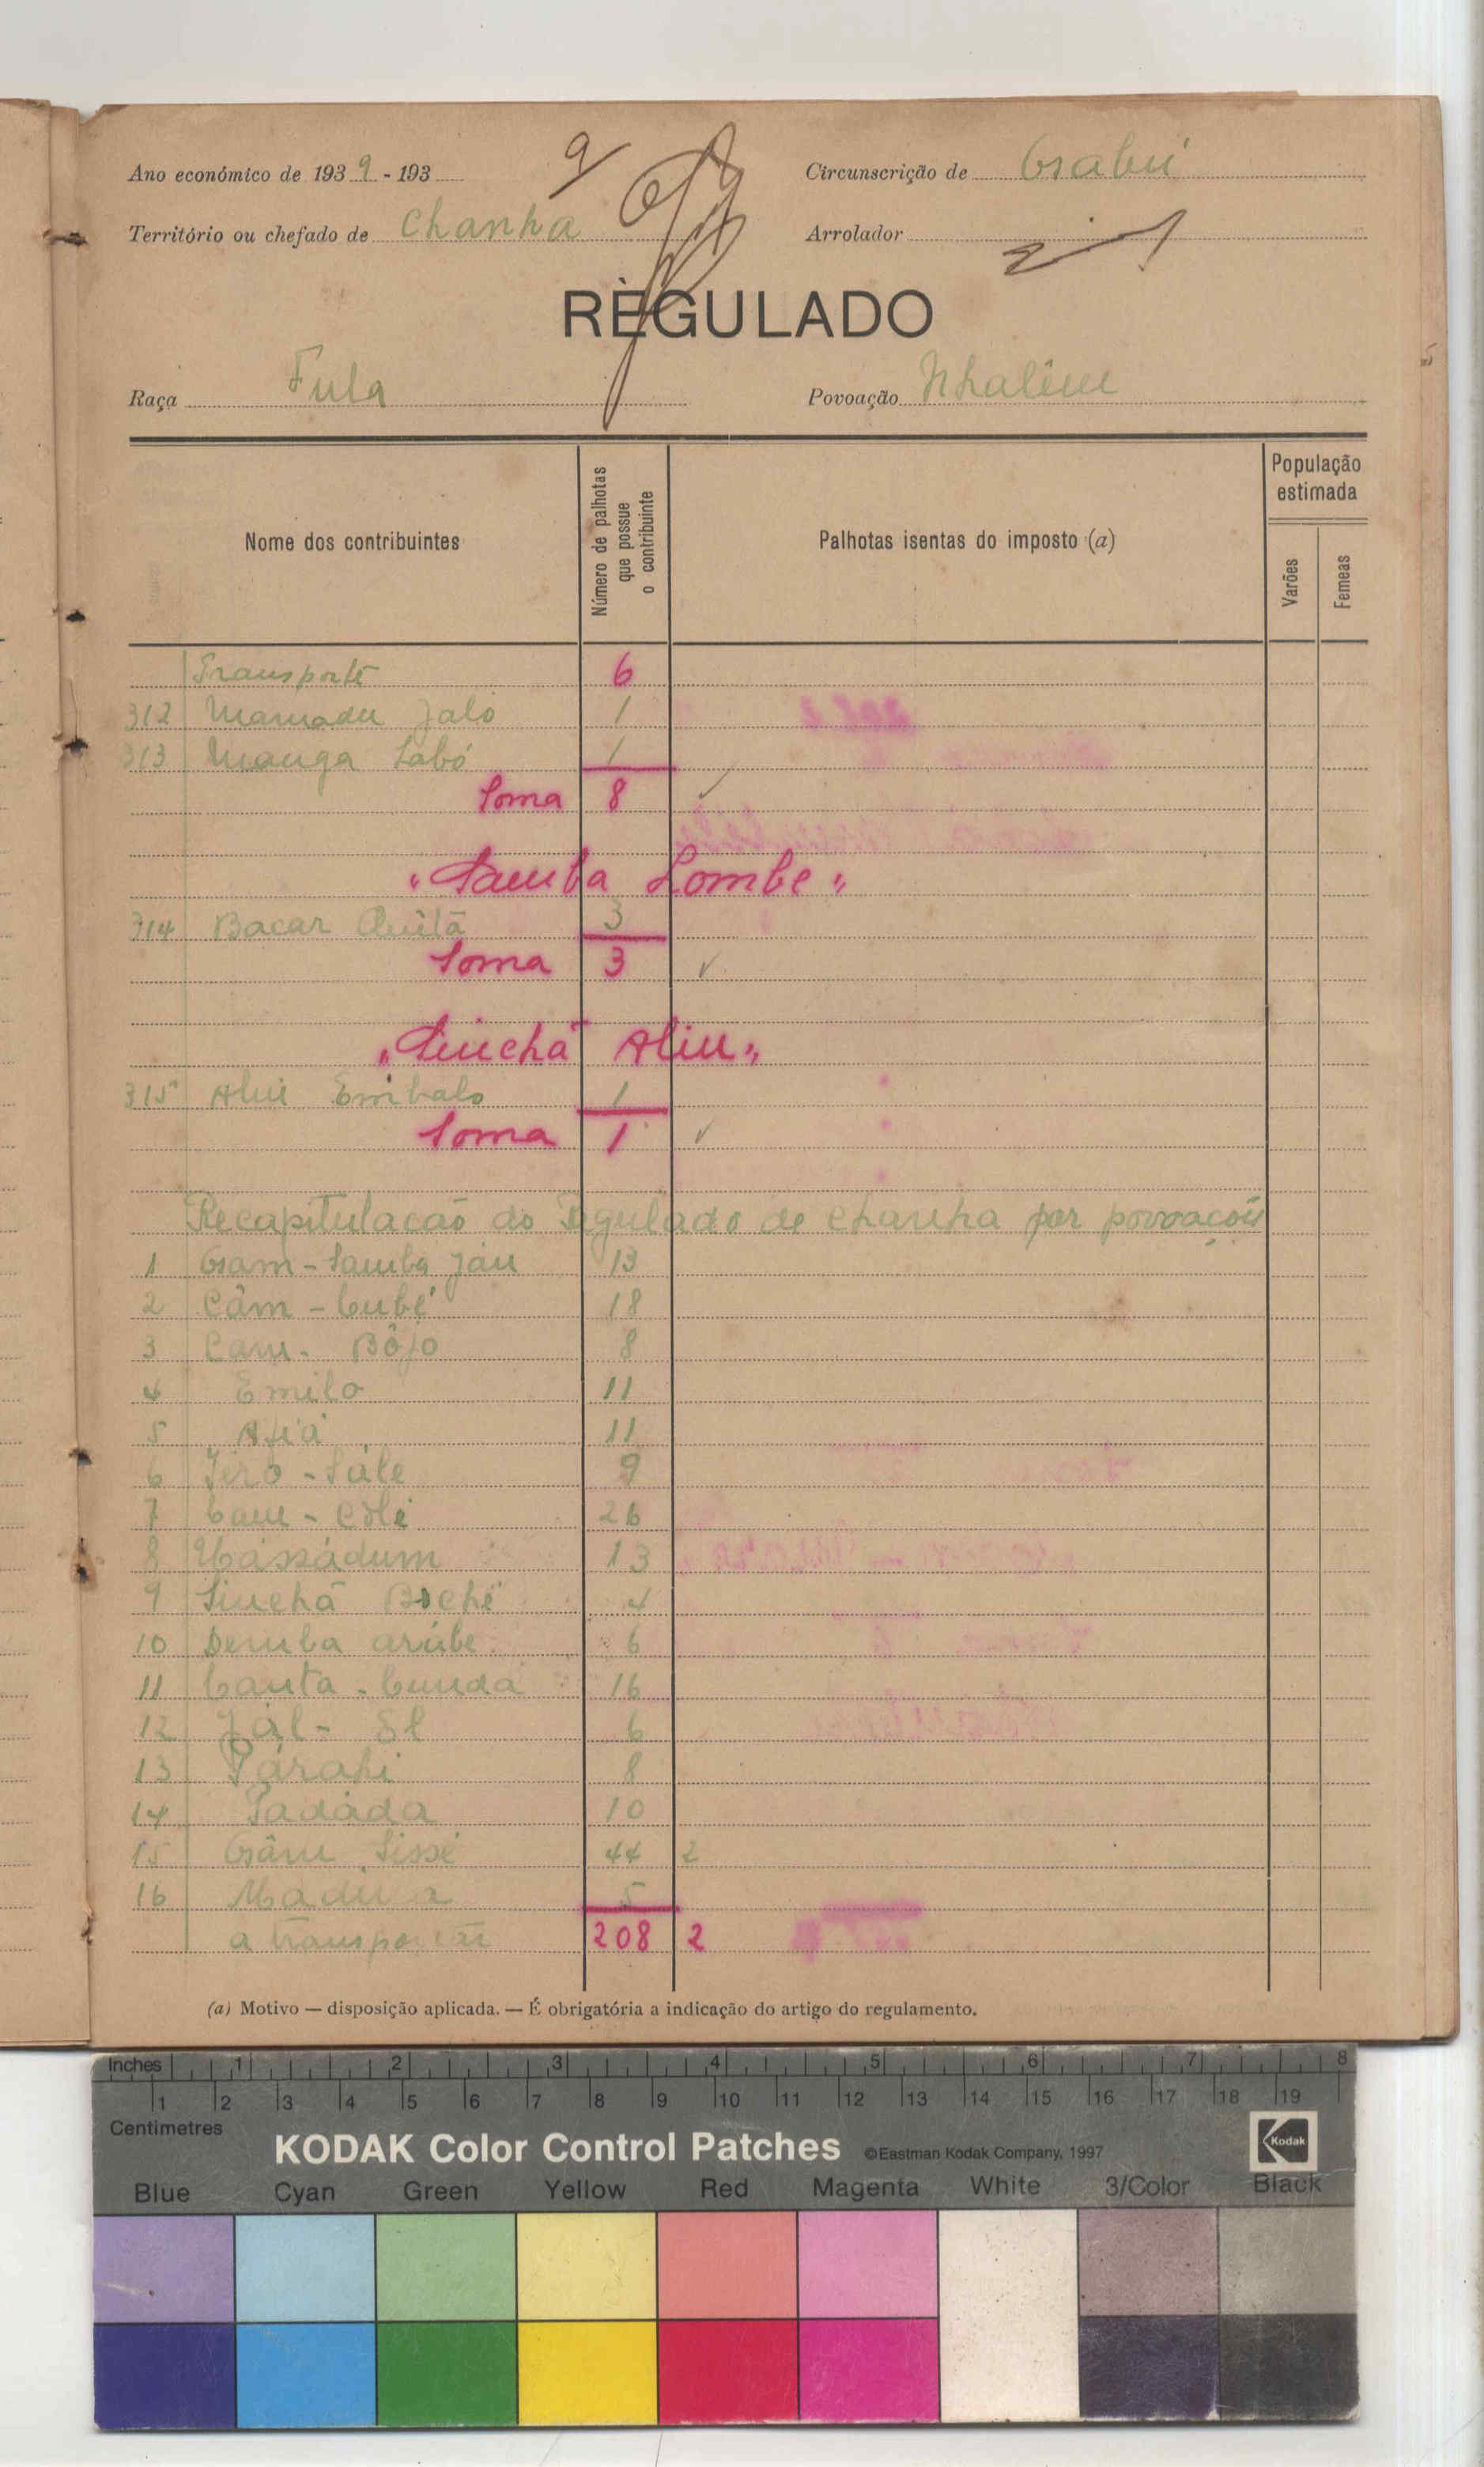 Ano económico de 1939-193
9
Circunscrição de Gabú
Território ou chefado de Chanha
Arrolador
RÈGULADO
Raça Fula
Povoação Nhalêm
Nome dos contribuintes
Número de palhotas que possue o contribuinte
Palhotas isentas do imposto (a)
População estimada
Varões
Femeas
Transporte 6
312 Mamadu Jaló 1
313 Manga Sabó 1
Soma 8
"Samba Lombe"
314 Bacar Quitã 3
Soma 3
"Sinchã Aliu"
315 Aliu Embalo 1
Soma 1
Recapitulação do Regulado de Chanha por povoações
1 Gam-Samba Jau 13
2 Câm-Cubé 18
3 Cam-Bôjo 8
4 Emilo 11
5 11
6 Jeró-Sále 9
7 Cam-Colé 26
8 13
9 Sinchã Boché 4
10 Demba arábe 6
11 Canta-Cunda 16
12 Jál-El 6
13 8
14 Padáda 10
15 Gâm Sissé 44 2
16 Madina 5
a transportar 208 2
(a) Motivo — disposição aplicada. — É obrigatória a indicação do artigo do regulamento.
Inches 1 2 3 4 5 6 7 8
1 2 3 4 5 6 7 8 9 10 11 12 13 14 15 16 17 18 19
Centimetres
KODAK Color Control Patches ©Eastman Kodak Company, 1997 Kodak
Blue Cyan Green Yellow Red Magenta White 3/Color Black